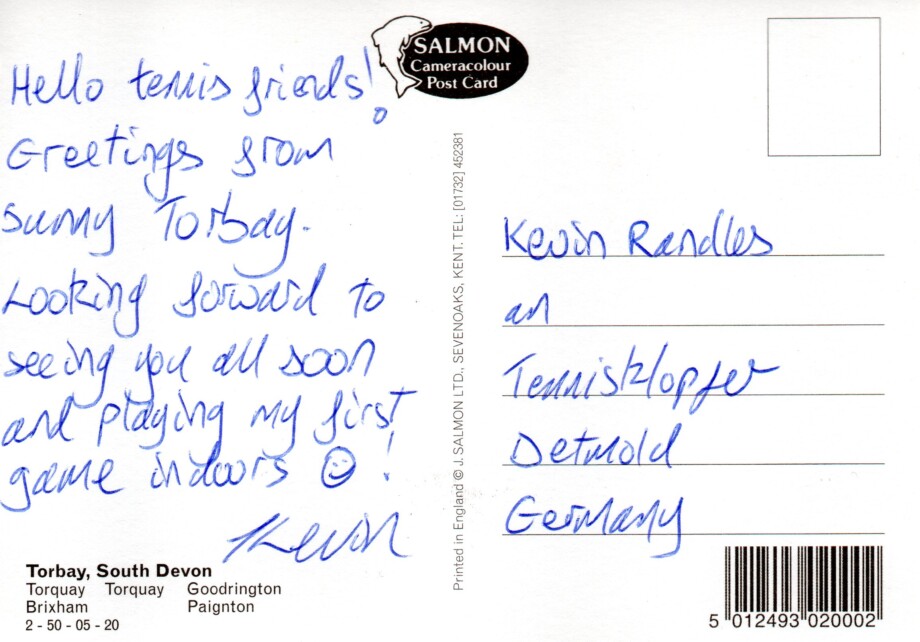 Hello tennis friends!
Greetings from
sunny Torbay.
Looking forward to
seeing you all soon
and playing my first
game indoors ☺ !
Kevin
Torbay, South Devon
Torquay Torquay Goodrington
Brixham Paignton
2 - 50 - 05 - 20
SALMON
Cameracolour
Post Card
Printed in England © J. SALMON LTD., SEVENOAKS, KENT. TEL: [01732] 452381
Kevin Randles
an
Tennisklopfer
Detmold
Germany
5 012493 020002